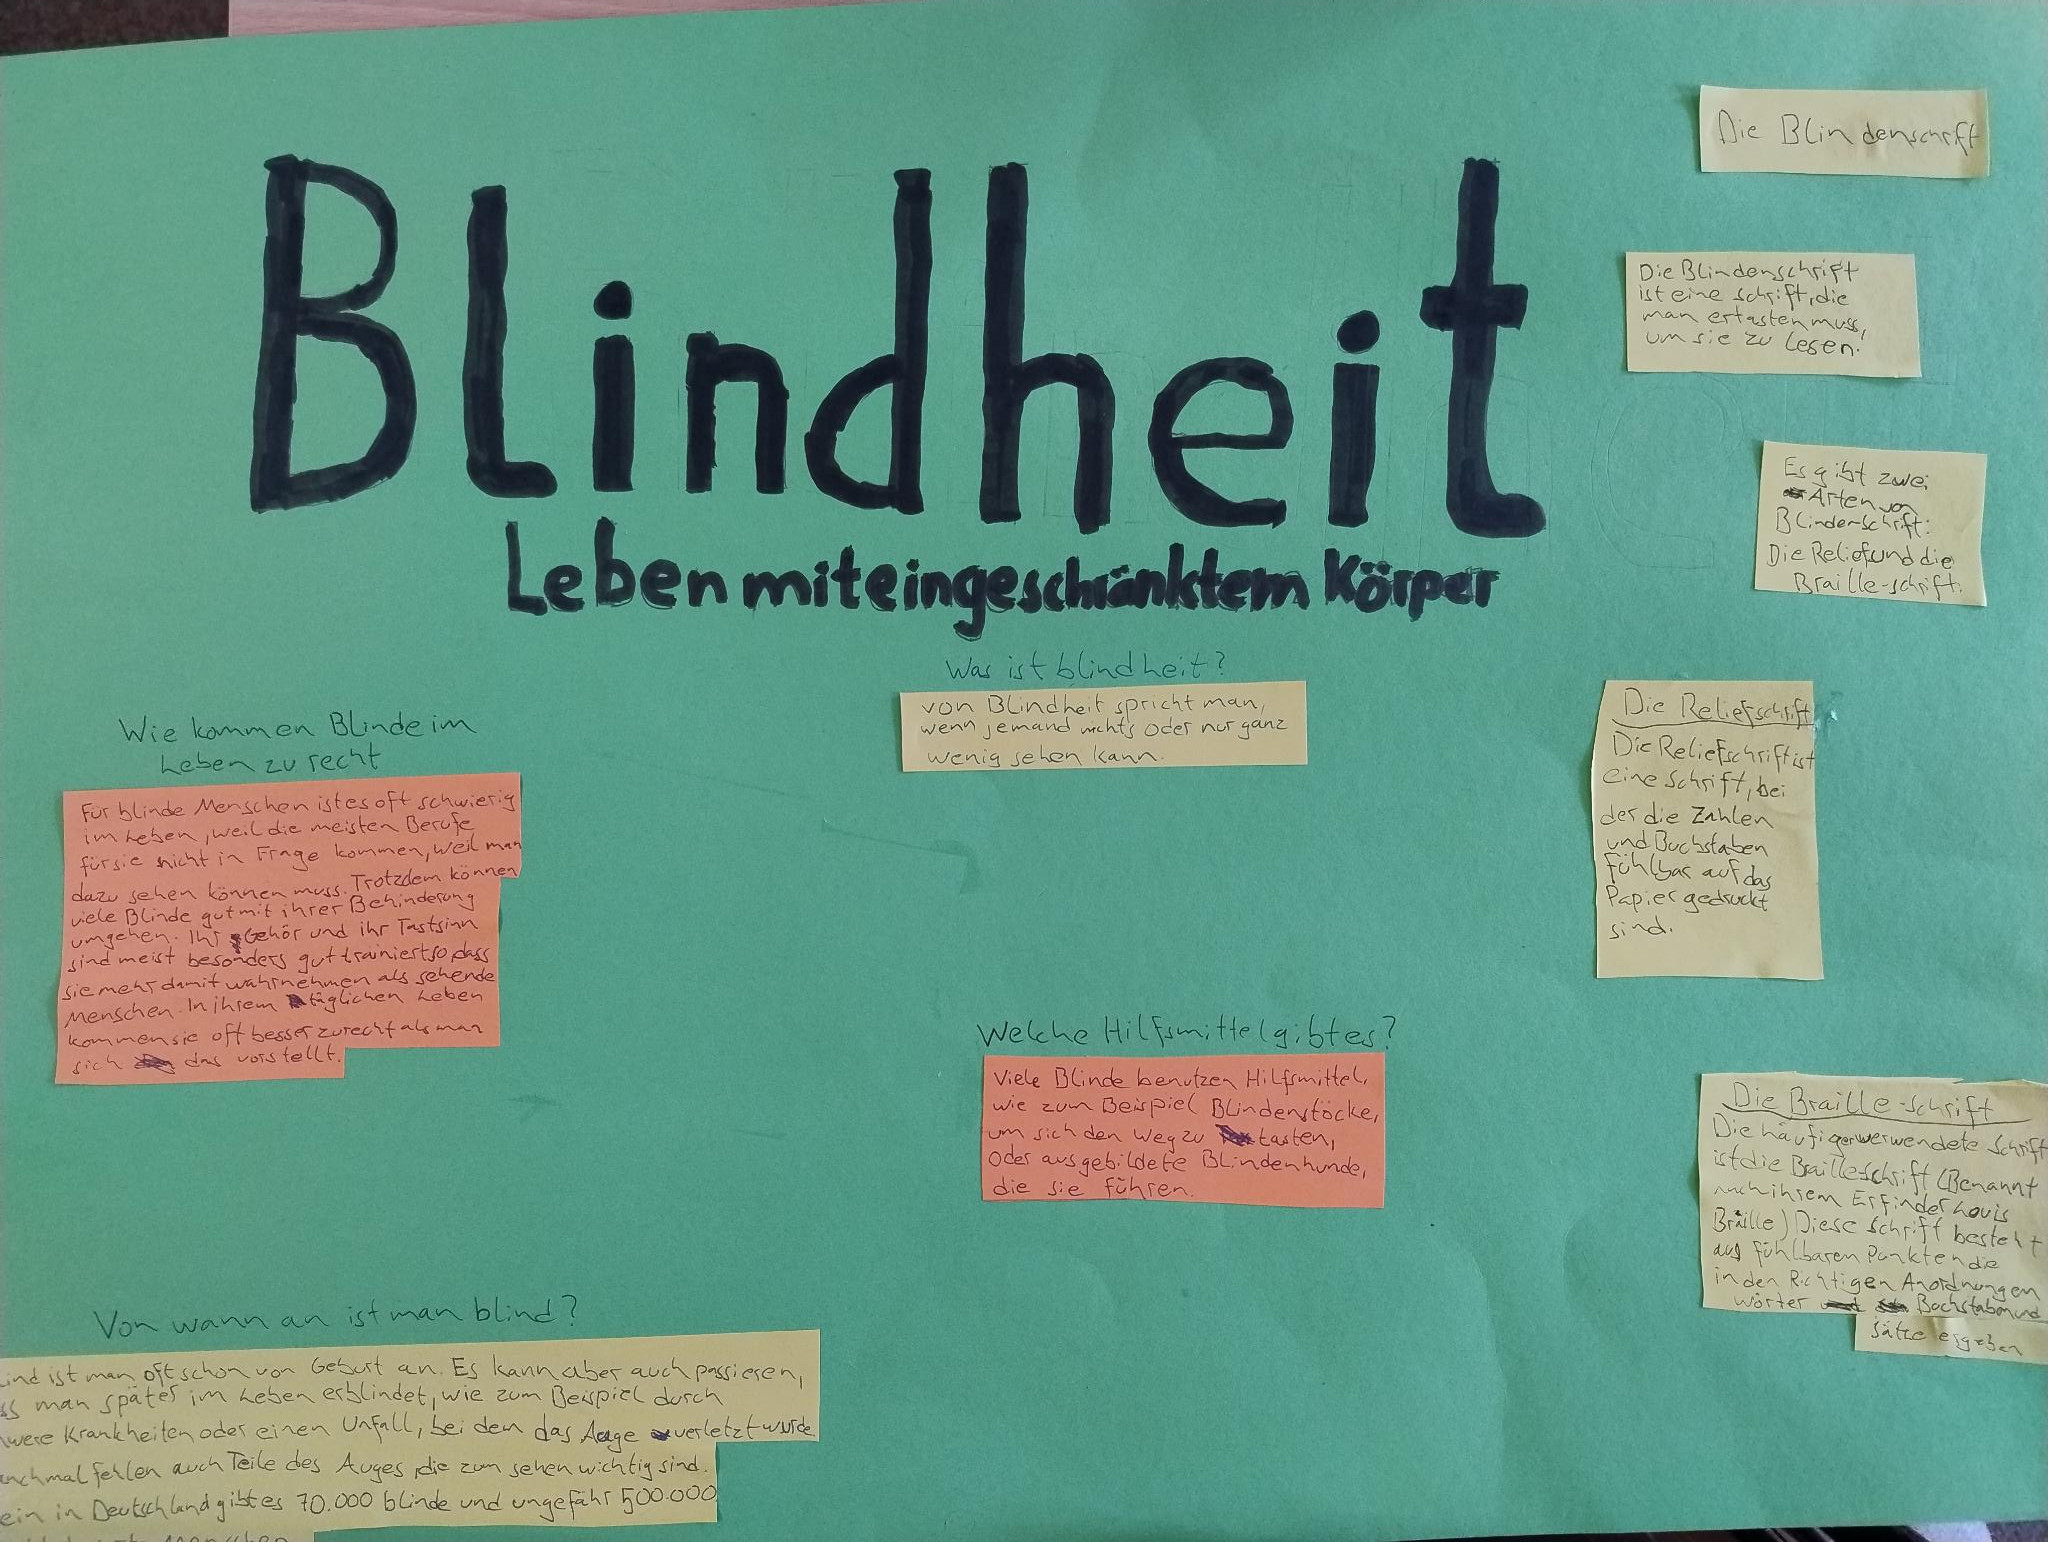 Blindheit
Leben mit eingeschränktem Körper
Was ist blindheit?
von Blindheit spricht man,
wenn jemand nichts oder nur ganz
wenig sehen kann.
Wie kommen Blinde im
Leben zu recht
Für blinde Menschen ist es oft schwierig
im Leben, weil die meisten Berufe
für sie nicht in Frage kommen, weil man
dazu sehen können muss. Trotzdem können
viele Blinde gut mit ihrer Behinderung
umgehen. Ihr Gehör und ihr Tastsinn
sind meist besonders gut trainiert so, dass
sie mehr damit wahrnehmen als sehende
Menschen. In ihrem täglichen Leben
kommen sie oft besser zurecht als man
sich das vorstellt.
Welche Hilfsmittel gibt es?
Viele Blinde benutzen Hilfsmittel,
wie zum Beispiel Blindenstöcke,
um sich den Weg zu tasten,
oder ausgebildete Blindenhunde,
die sie führen.
Von wann an ist man blind?
ind ist man oft schon von Geburt an. Es kann aber auch passieren,
ss man später im Leben erblindet, wie zum Beispiel durch
were Krankheiten oder einen Unfall, bei dem das Auge verletzt wurde
anchmal fehlen auch Teile des Auges, die zum sehen wichtig sind.
ein in Deutschland gibt es 70.000 blinde und ungefähr 500.000
Menschen
Die Blindenschrift
Die Blindenschrift
ist eine schrift, die
man ertasten muss,
um sie zu lesen!
Es gibt zwei
Arten von
Blindenschrift:
Die Relief und die
Braille-schrift.
Die Reliefschrift
Die Reliefschrift ist
eine schrift, bei
der die Zahlen
und Buchstaben
fühlbar auf das
Papier gedruckt
sind.
Die Braille-schrift
Die häufiger verwendete schrift
ist die Brailleschrift (Benannt
nach ihrem Erfinder Louis
Braille) Diese schrift besteht
aus fühlbaren Punkten die
in den Richtigen Anordnungen
wörter Buchstaben und
sätze ergeben